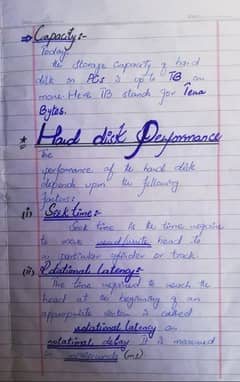 Capacity:-
Today,
the storage capacity of hard
disk on PCs is up to TB or
more. Here TB stands for Tera
Bytes.
Hard disk Performance
The
performance of the hard disk
depends upon the following
factors:
(i) Seek time:-
Seek time is the time require
to move read/write head to
a particular cylinder or track.
(ii) Rotational latency:-
The time required to reach the
head at the beginning of an
appropriate sector is called
rotational latency or
rotational delay. It is measured
in milliseconds (ms)